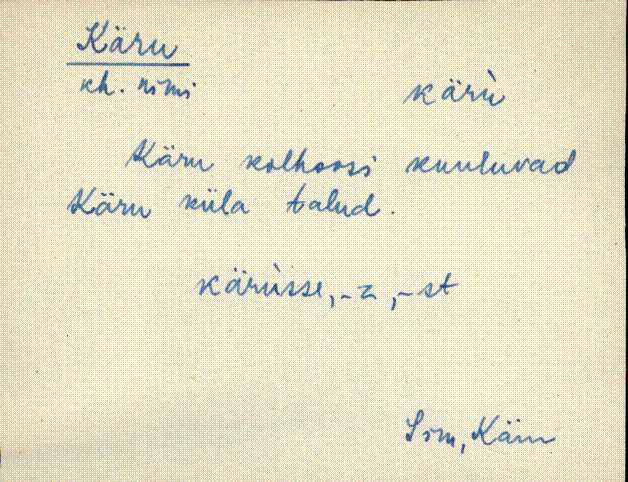 Käru
kh. nimi
kärù
Käru kolhoosi kuuluvad
Käru küla talud.
kärùsse, -z, -st
Sim, Käru